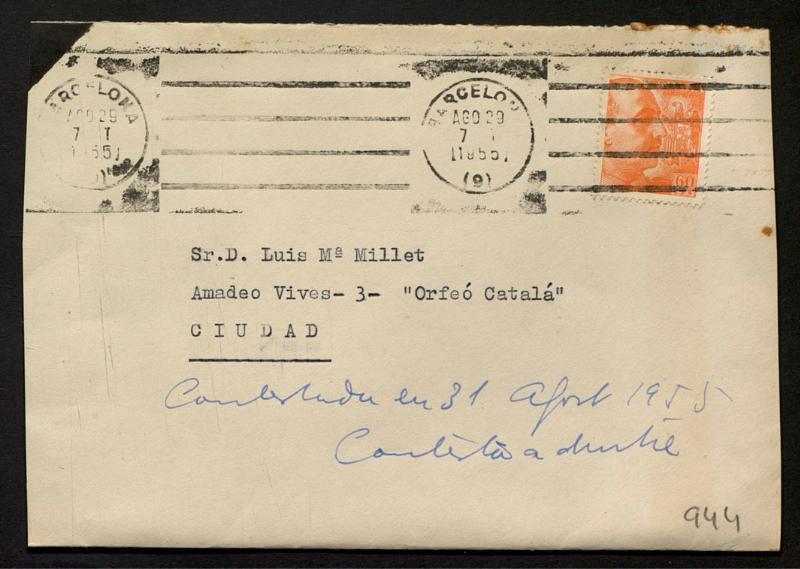 BARCELONA
AGO 29
7 T
1955
(9)
BARCELON
AGO 29
7 T
1955
(9)
60
Sr.D. Luis Mª Millet
Amadeo Vives- 3- "Orfeó Catalá"
CIUDAD
Contestada en 31 Agost 1955
944